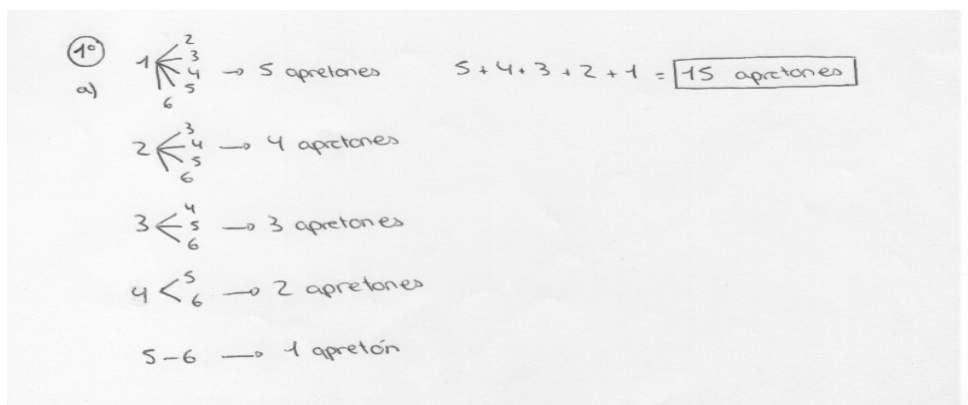 1º
a)
1 2 3 4 5 6 → 5 apretones
5 + 4 + 3 + 2 + 1 = 15 apretones
2 3 4 5 6 → 4 apretones
3 4 5 6 → 3 apretones
4 5 6 → 2 apretones
5 - 6 → 1 apretón